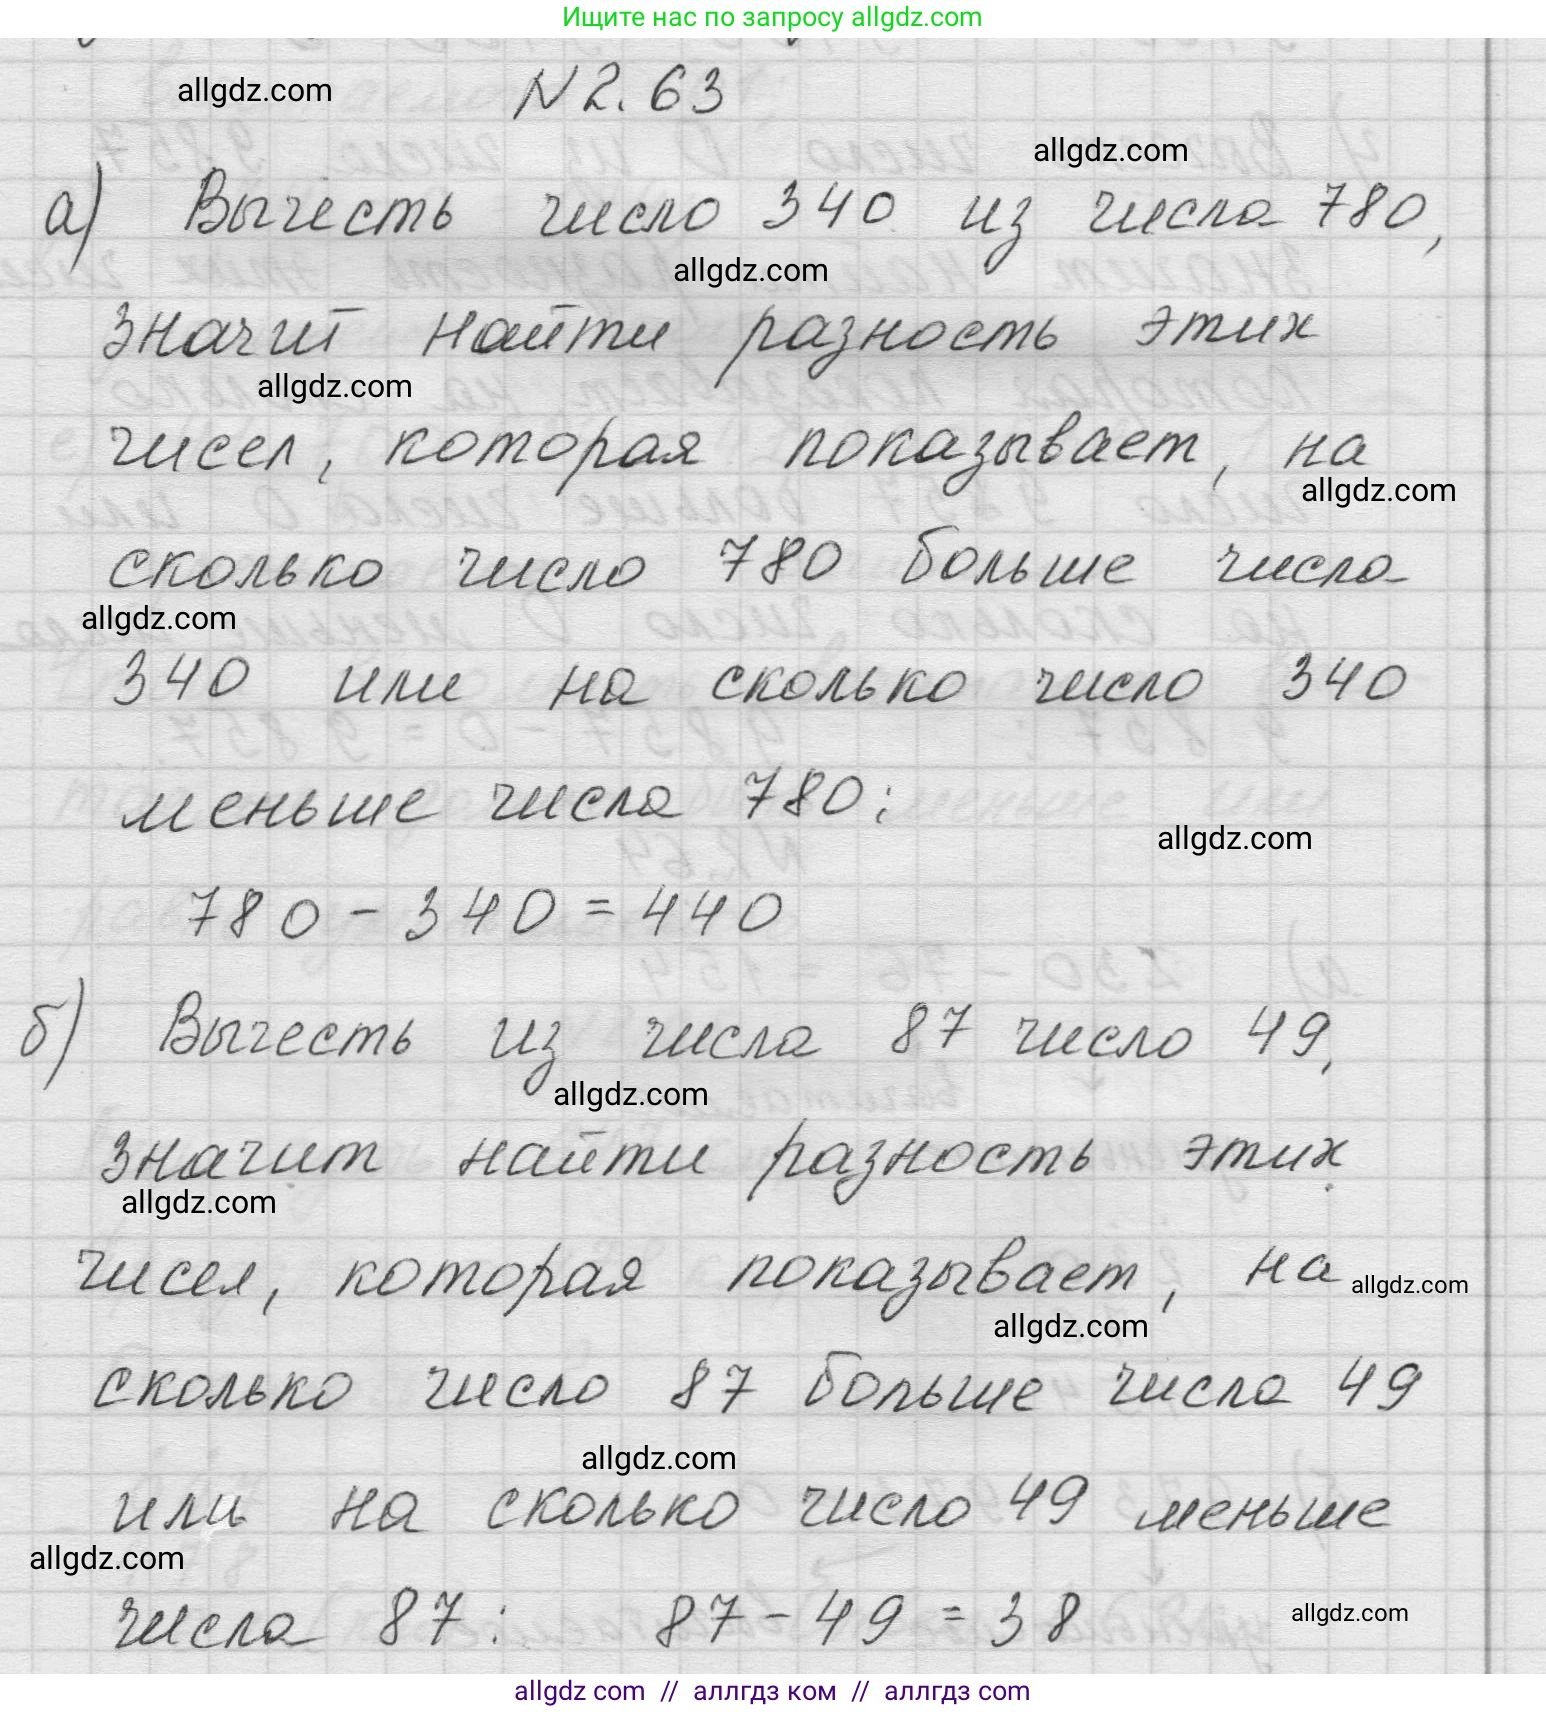 Ищите нас по запросу allgdz.com
allgdz.com
N 2.63
allgdz.com
а) Вычесть число 340 из числа 780,
allgdz.com
значит найти разность этих
allgdz.com
чисел, которая показывает, на
allgdz.com
сколько число 780 больше числа
allgdz.com
340 или на сколько число 340
меньше числа 780:
allgdz.com
780 - 340 = 440
б) Вычесть из числа 87 число 49,
allgdz.com
значит найти разность этих
allgdz.com
чисел, которая показывает, на
allgdz.com
allgdz.com
сколько число 87 больше числа 49
allgdz.com
или на сколько число 49 меньше
allgdz.com
числа 87: 87 - 49 = 38
allgdz.com
allgdz com // аллгдз ком // аллгдз com